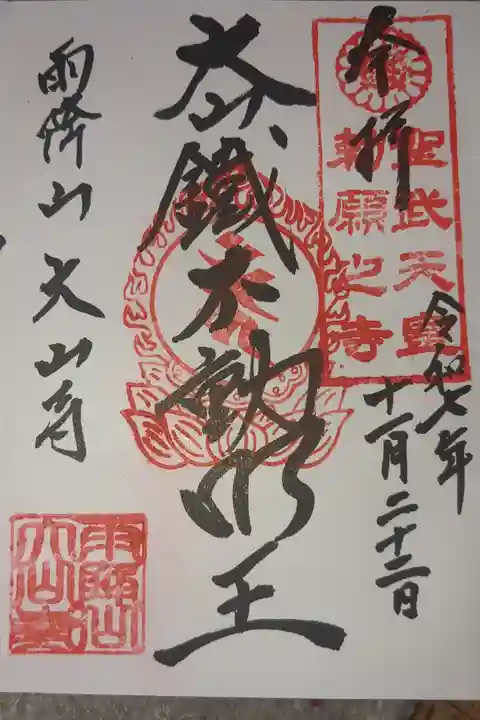 奉拝
聖武天皇
勅願之寺
令和七年
十一月二十二日
大山鐵不動明王
雨降山大山寺
雨降山
大山寺